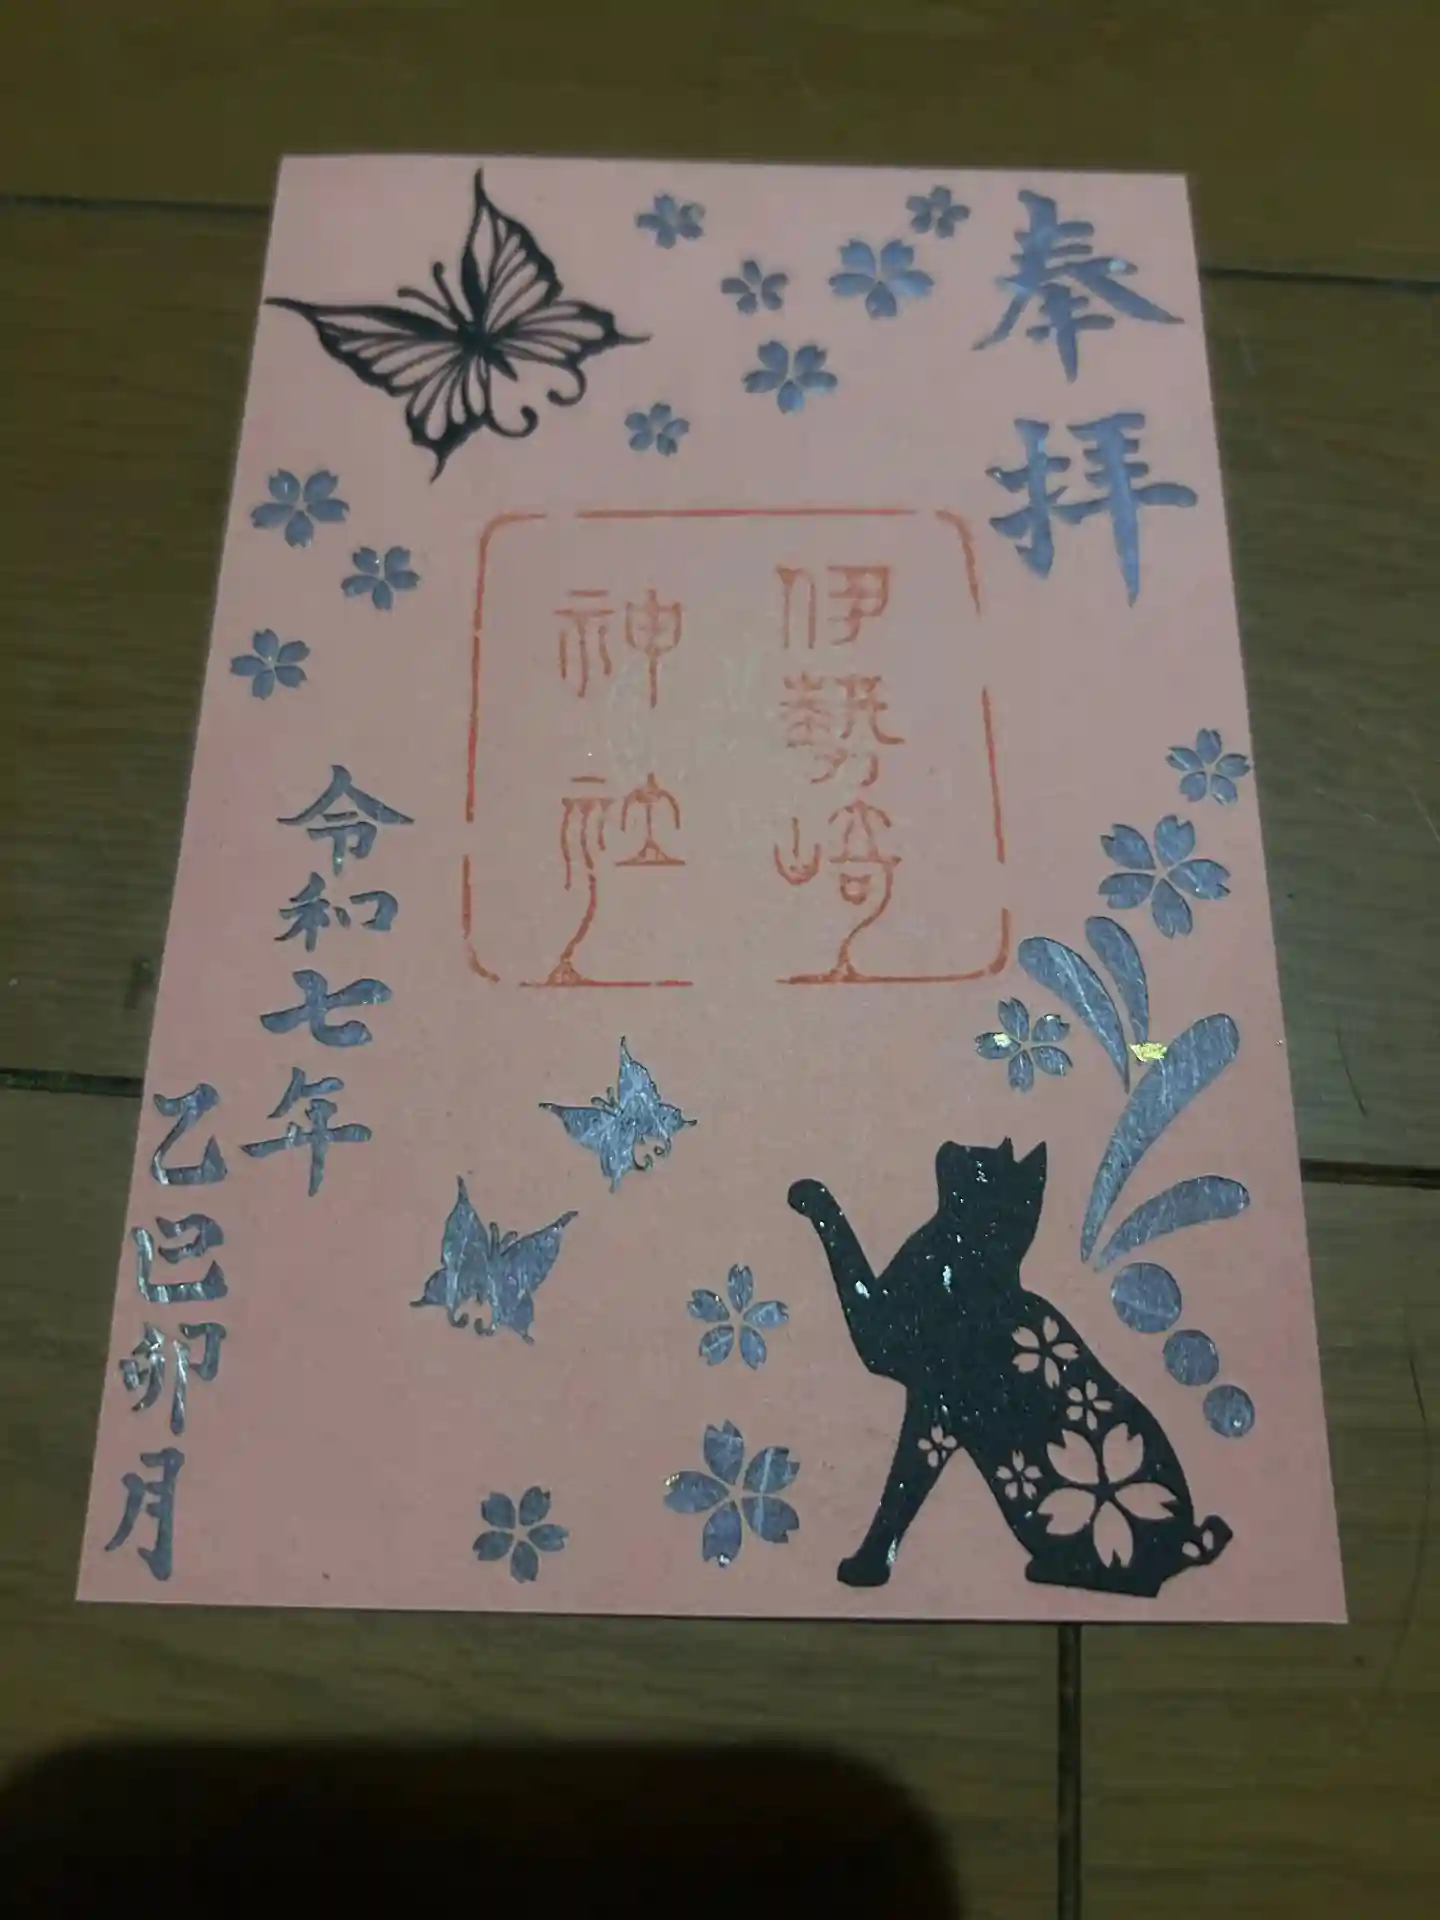 奉拝
伊勢崎
神社
令和七年
乙巳卯月